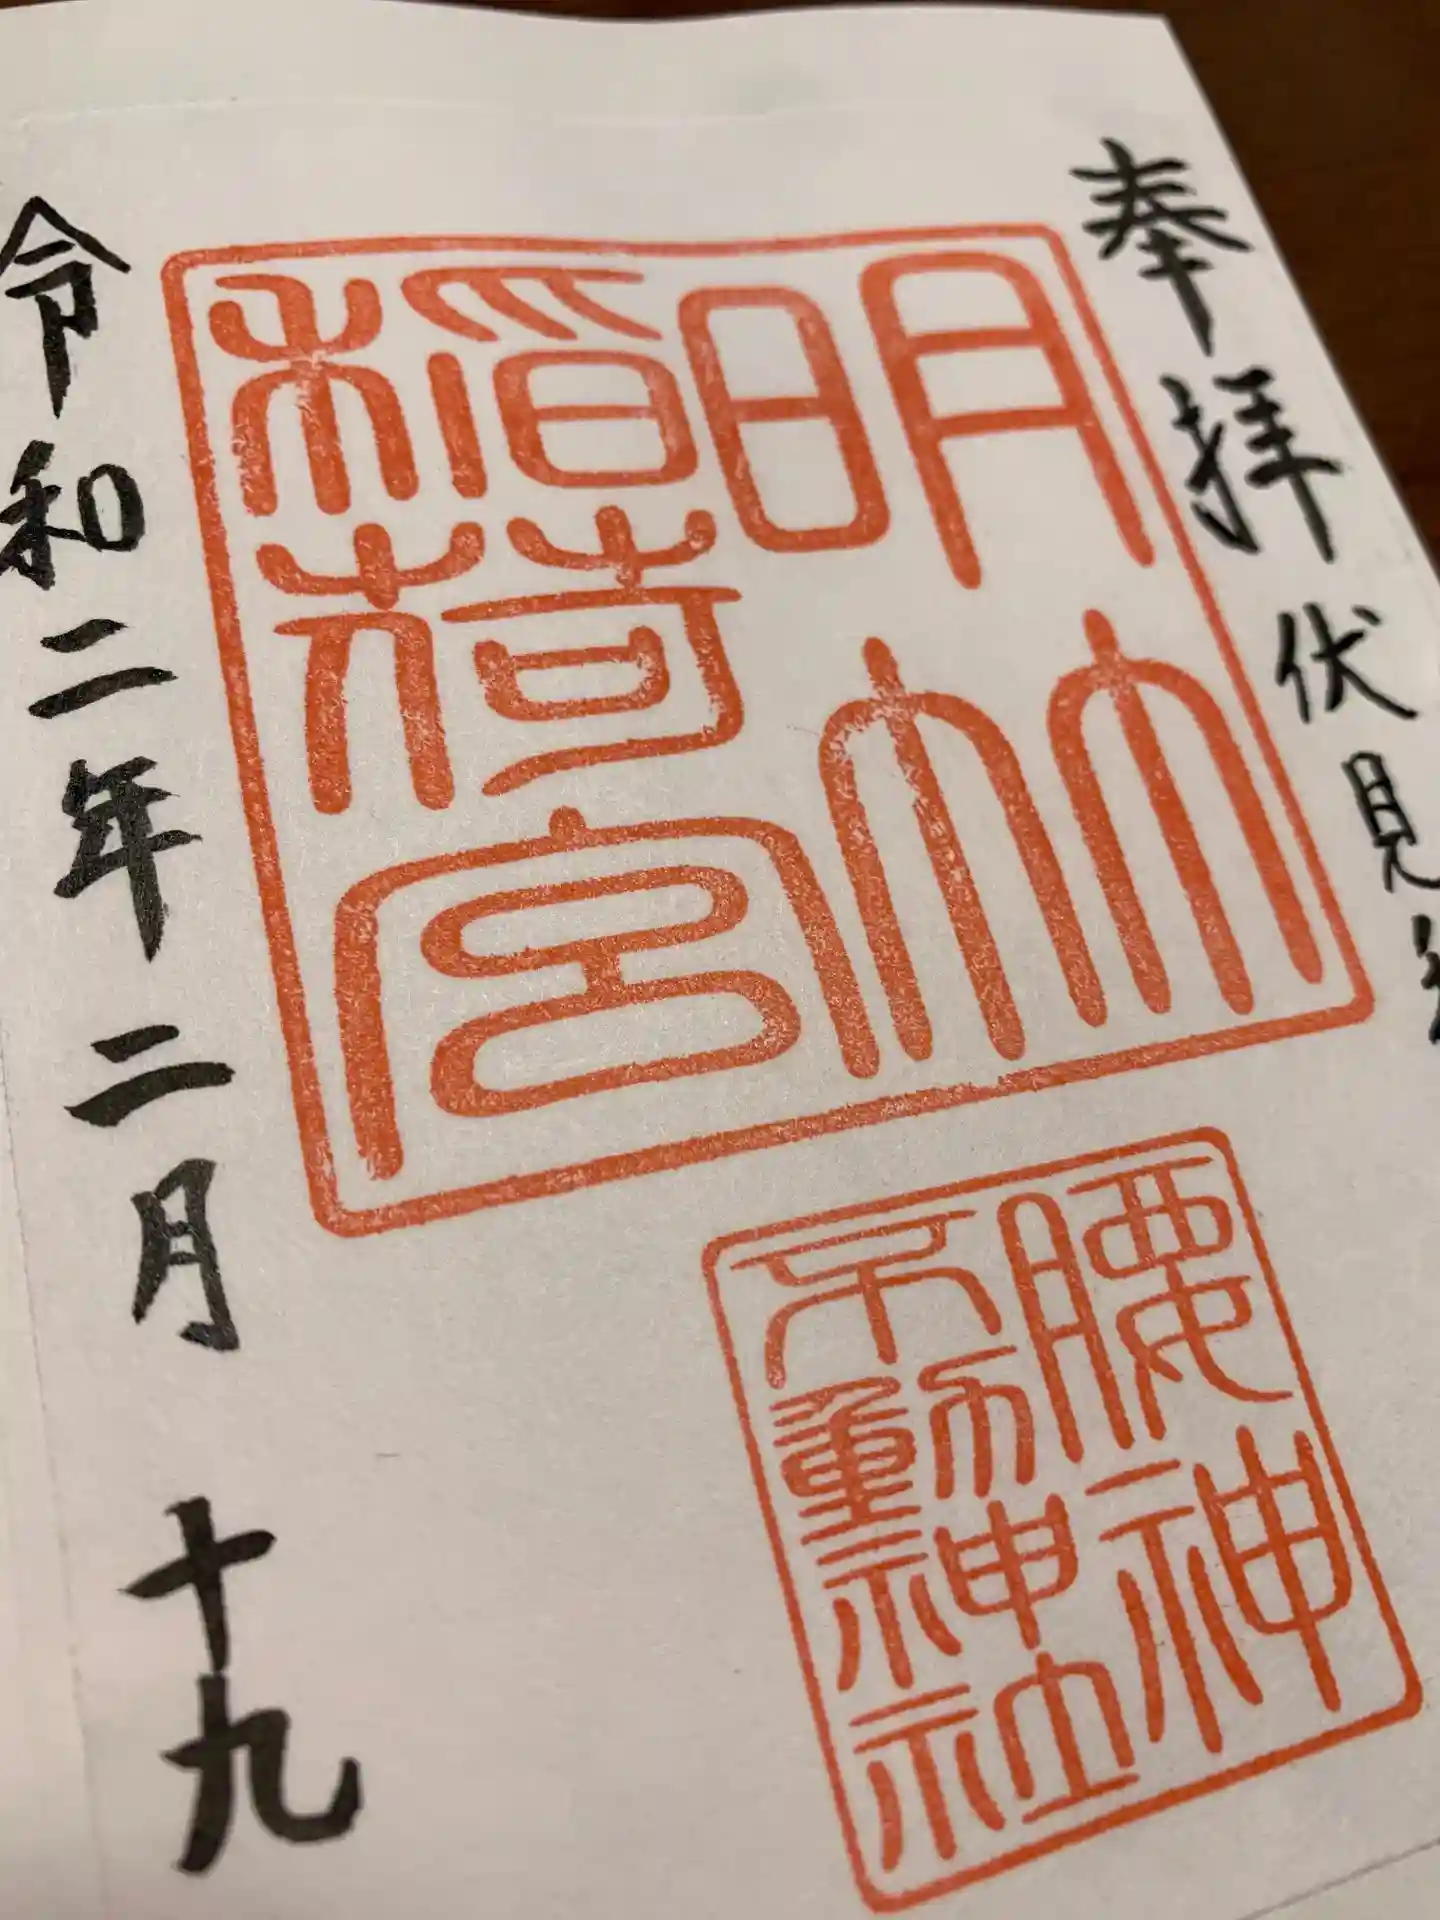 奉拝 伏見
明竹
稲荷宮
腰神
不動神社
令和二年二月 十九